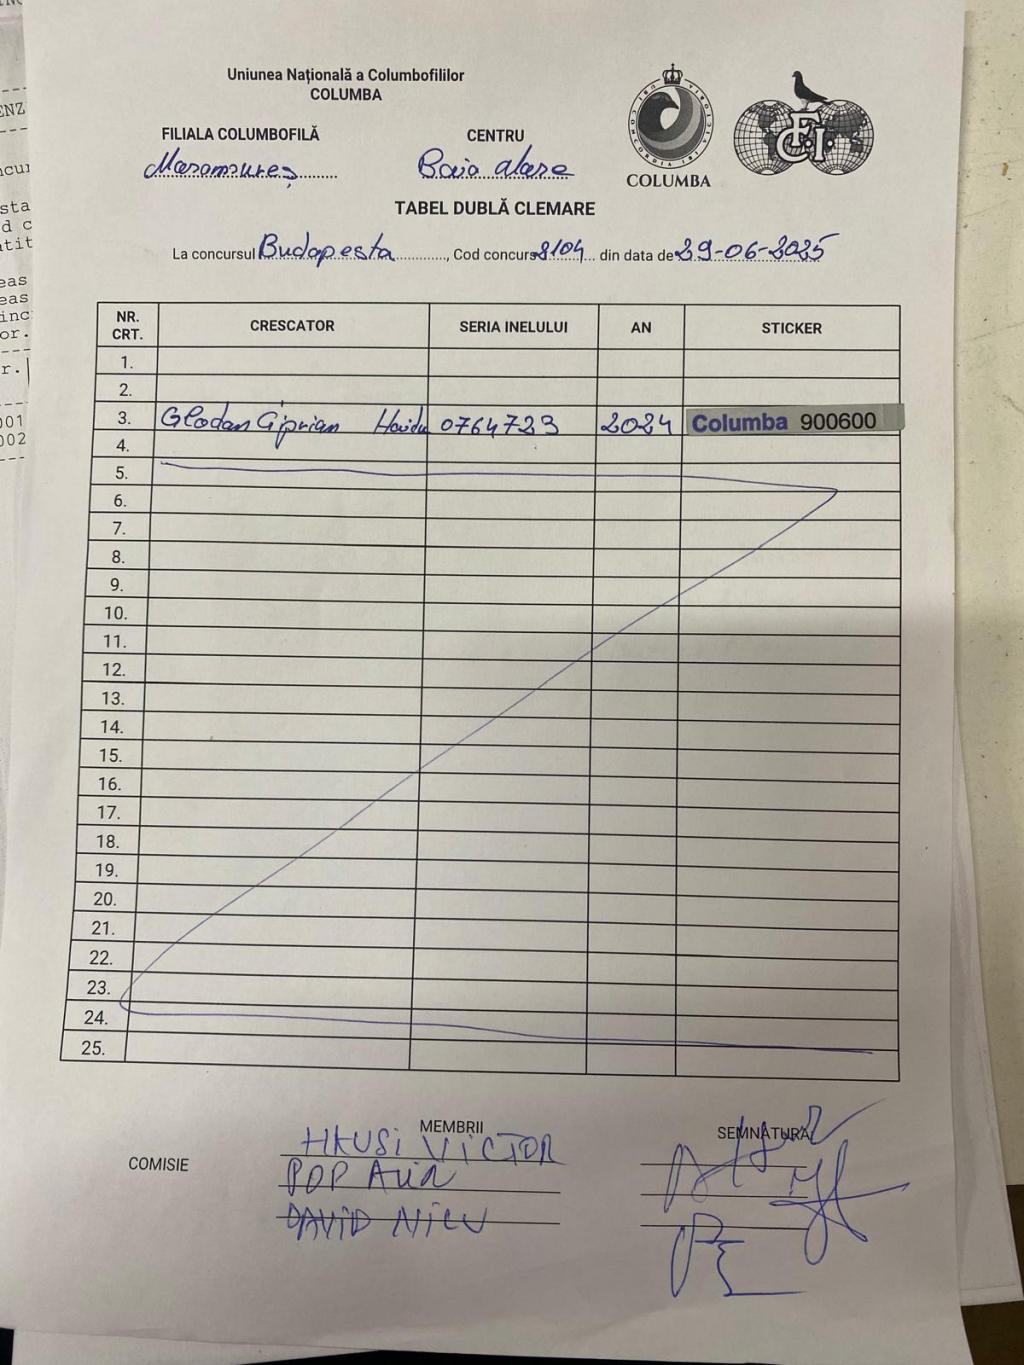 Uniunea Națională a Columbofililor
COLUMBA
FILIALA COLUMBOFILĂ CENTRU
Maramureș Baia Mare
COLUMBA
TABEL DUBLĂ CLEMARE
La concursul Budapesta, Cod concurs 8104 din data de 29-06-2025
NR. CRT. CRESCATOR SERIA INELULUI AN STICKER
1.
2.
3. Glodan Ciprian Haidu 0764723 2024 Columba 900600
4.
5.
6.
7.
8.
9.
10.
11.
12.
13.
14.
15.
16.
17.
18.
19.
20.
21.
22.
23.
24.
25.
MEMBRII SEMNĂTURA
COMISIE
VICTOR
POP
DAVID NICU